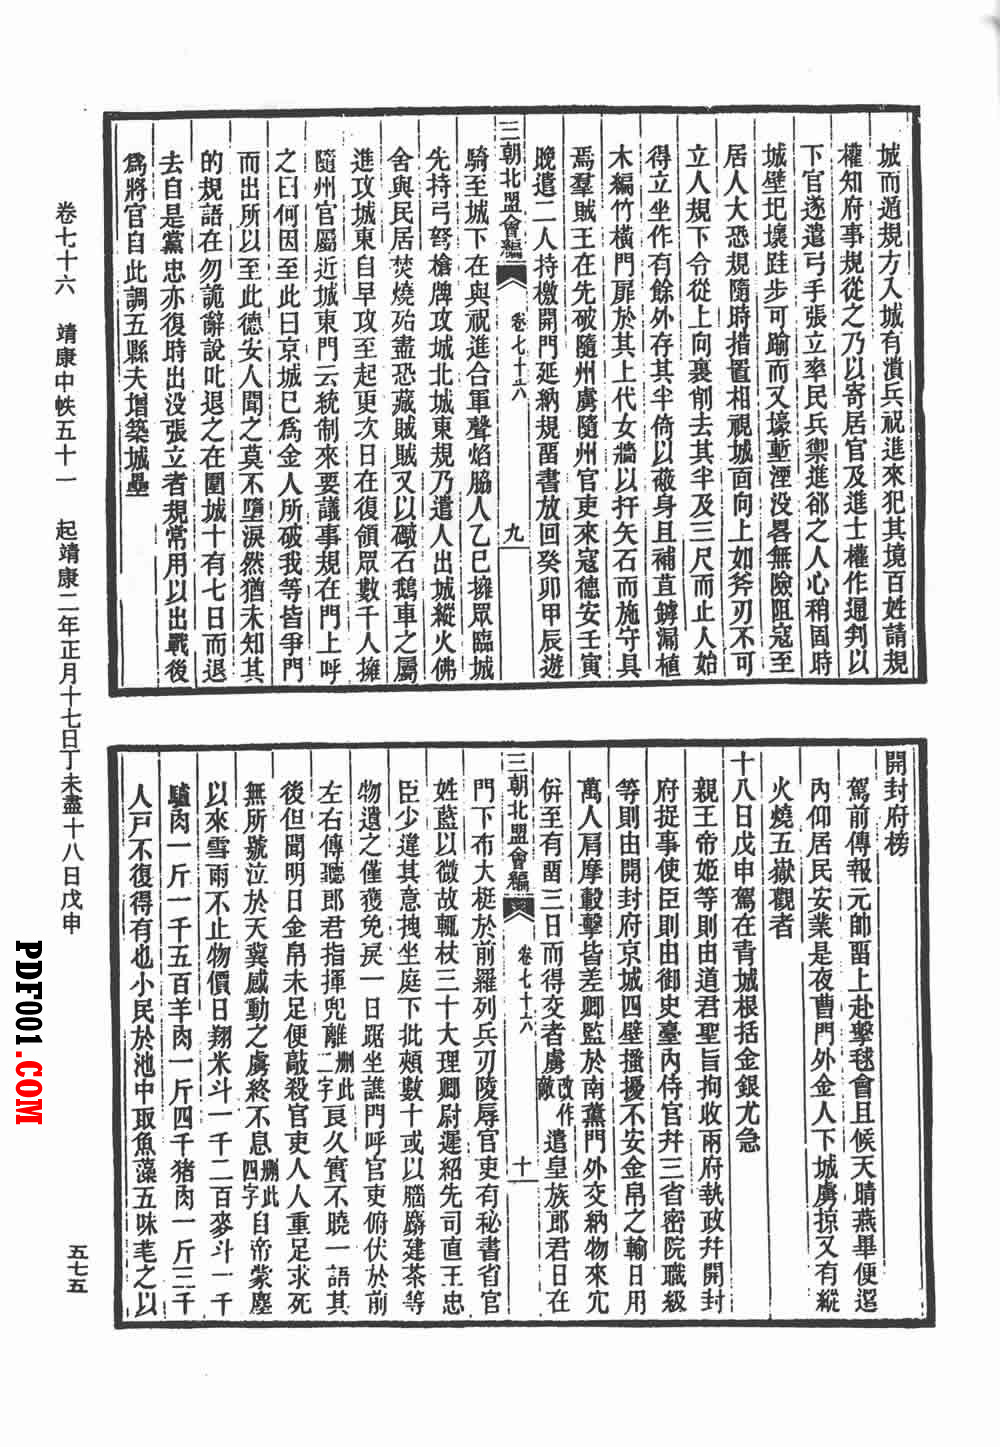 城而遁規方入城有潰兵祝進來犯其境百姓請規
權知府事規從之乃以寄居官及進士權作通判以
下官遂遣弓手張立率民兵禦進郤之人心稍固時
城壁圯壞跬步可踰而又壕塹湮没畧無險阻寇至
居人大恐規隨時措置相視城面向上如斧刃不可
立人規下令從上向裏削去其半及三尺而止人始
得立坐作有餘外存其半倚以蔽身且補苴罅漏植
木編竹橫門扉於其上代女牆以扞矢石而施守具
焉羣賊王在先破隨州虜隨州官吏來寇德安壬寅
晚遣二人持檄開門延納規畱書放回癸卯甲辰遊
三朝北盟會編
卷七十六
九
騎至城下在與祝進合軍聲焰脇人乙巳擁眾臨城
先持弓弩槍牌攻城北城東規乃遣人出城縱火佛
舍與民居焚燒殆盡恐藏賊賊又以礮石鵝車之屬
進攻城東自早攻至起更次日在復領眾數千人擁
隨州官屬近城東門云統制來要議事規在門上呼
之曰何因至此曰京城已為金人所破我等皆爭門
而出所以至此德安人聞之莫不墮淚然猶未知其
的規語在勿詭辭說叱退之在圍城十有七日而退
去自是黨忠亦復時出没張立者規常用以出戰後
為將官自此調五縣夫增築城壘
開封府榜
駕前傳報元帥畱上赴擊毬會且候天晴燕畢便還
內仰居民安業是夜曹門外金人下城虜掠又有縱
火燒五嶽觀者
十八日戊申駕在青城根括金銀尤急
親王帝姬等則由道君聖旨拘收兩府執政幷開封
府捉事使臣則由御史臺內侍官幷三省密院職級
等則由開封府京城四壁搔擾不安金帛之輸日用
萬人肩摩轂擊皆差卿監於南薰門外交納物來宂
倂至有畱三日而得交者虜改作敵遣皇族郎君日在
三朝北盟會編
卷七十六
十
門下布大梃於前羅列兵刃陵辱官吏有秘書省官
姓監以微故輒杖三十大理卿尉遲紹先司直王忠
臣少違其意拽坐庭下批頰數十或以腦麝建茶等
物遺之僅獲免戾一日踞坐譙門呼官吏俯伏於前
左右傳聽郎君指揮兜離刪此二字良久實不曉一語其
後但聞明日金帛未足便敲殺官吏人人重足求死
無所號泣於天冀感動之虜終不息刪此四字自帝蒙塵
以來雪雨不止物價日翔米斗一千二百麥斗一千
驢肉一斤一千五百羊肉一斤四千猪肉一斤三千
人戸不復得有也小民於池中取魚藻五味芼之以
卷七十六　靖康中帙五十一　起靖康二年正月十七日丁未盡十八日戊申
五七五
PDF001.COM